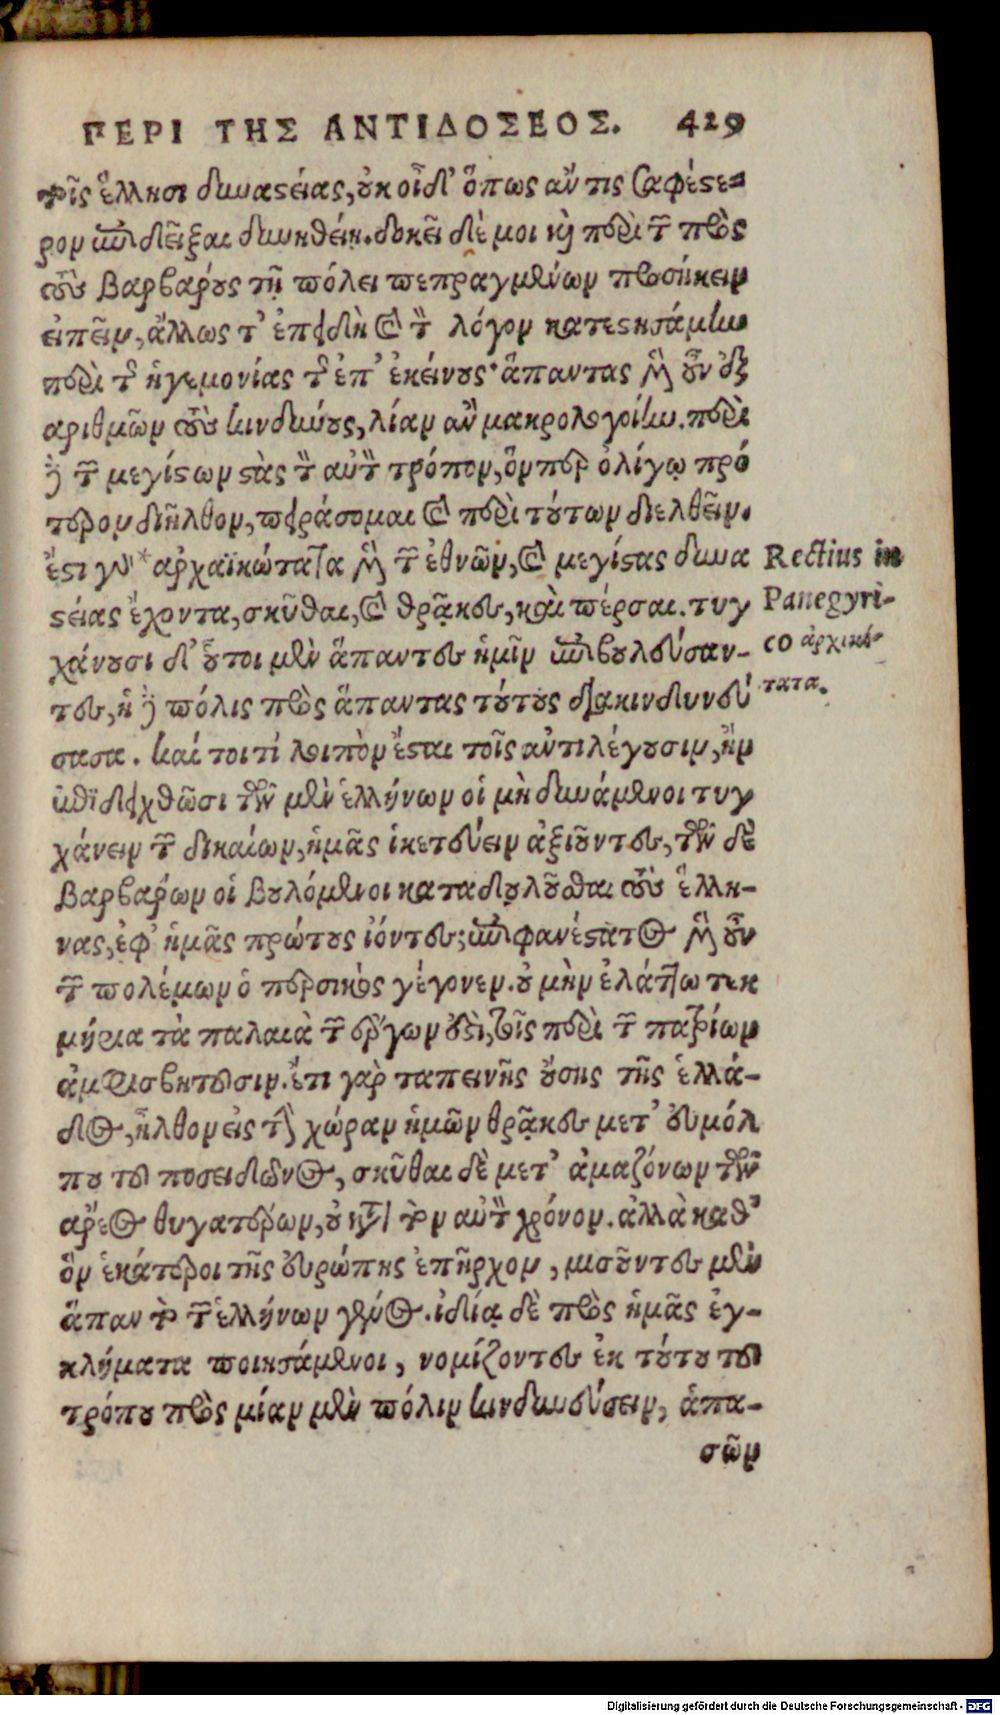 ΠΕΡΙ ΤΗΣ ΑΝΤΙΔΟΣΕΟΣ. 429
τοῖς ἕλλησι δυναστείας, οὐκ οἶδ' ὅπως ἄν τις σαφέστε-
ρον ἐπιδεῖξαι δυνηθείη. δοκεῖ δέ μοι καὶ περὶ τῶν πρὸς
τοὺς βαρβάρους τῇ πόλει πεπραγμένων προσήκειν
εἰπεῖν, ἄλλως τ' ἐπειδὴ καὶ τὸν λόγον κατεστησάμην
περὶ τῆς ἡγεμονίας τῆς ἐπ' ἐκείνους· ἅπαντας μὲν οὖν ἐξ
αριθμῶν τοὺς κινδύνους, λίαν ἂν μακρολογοίην. περὶ
δὲ τῶν μεγίστων στὰς τὸν αὐτὸν τρόπον, ὅνπερ ὀλίγῳ πρό
τερον διῆλθον, πειράσομαι καὶ περὶ τούτων διελθεῖν.
ἔστι γὰρ *αρχαϊκώτατα μὲν τῶν ἐθνῶν, καὶ μεγίστας δυνα
στείας ἔχοντα, σκῦθαι, καὶ θρᾷκες, καὶ πέρσαι. τυγ
χάνουσι δ' οὗτοι μὲν ἅπαντες ἡμῖν ἐπιβουλεύσαν-
τες, ἡ δὲ πόλις πρὸς ἅπαντας τούτους διακινδυνεύ
σασα. καί τοι τί λοιπὸν ἔσται τοῖς αντιλέγουσιν, ἢν
ἐπιδειχθῶσι τῶν μὲν ἑλλήνων οἱ μὴ δυνάμενοι τυγ
χάνειν τῶν δικαίων, ἡμᾶς ἱκετεύειν ἀξιοῦντες, τῶν δὲ
βαρβάρων οἱ βουλόμενοι καταδουλοῦσθαι τοὺς ἕλλη-
νας, ἐφ' ἡμᾶς πρώτους ἰόντες; ἐπιφανέστατος μὲν οὖν
τῶν πολέμων ὁ περσικὸς γέγονεν. οὐ μὴν ἐλάττω τεκ
μήρια τὰ παλαιὰ τῶν ἔργων ἐστὶ, τοῖς περὶ τῶν πατρίων
ἀμφισβητοῦσιν. ἔτι γὰρ ταπεινῆς οὔσης τῆς ἑλλά-
δος, ἦλθον εἰς τὴν χώραν ἡμῶν θρᾷκες μετ' εὐμόλ
που του ποσειδῶνος, σκῦθαι δὲ μετ' ἀμαζόνων τῶν
αρεος θυγατέρων, οὐ κατὰ τὸν αὐτὸν χρόνον. ἀλλὰ καθ'
ὃν ἑκάτεροι τῆς εὐρώπης ἐπῆρχον, μισοῦντες μὲν
ἅπαν τὸ τῶν ἑλλήνων γένος. ἰδίᾳ δὲ πρὸς ἡμᾶς ἐγ-
κλήματα ποιησάμενοι, νομίζοντες ἐκ τούτου του
τρόπου πρὸς μίαν μὲν πόλιν κινδυνεύσειν, ἁπα-
σῶν
Rectius in
Panegyri-
co ἀρχικώ-
τατα.
Digitalisierung gefördert durch die Deutsche Forschungsgemeinschaft - DFG